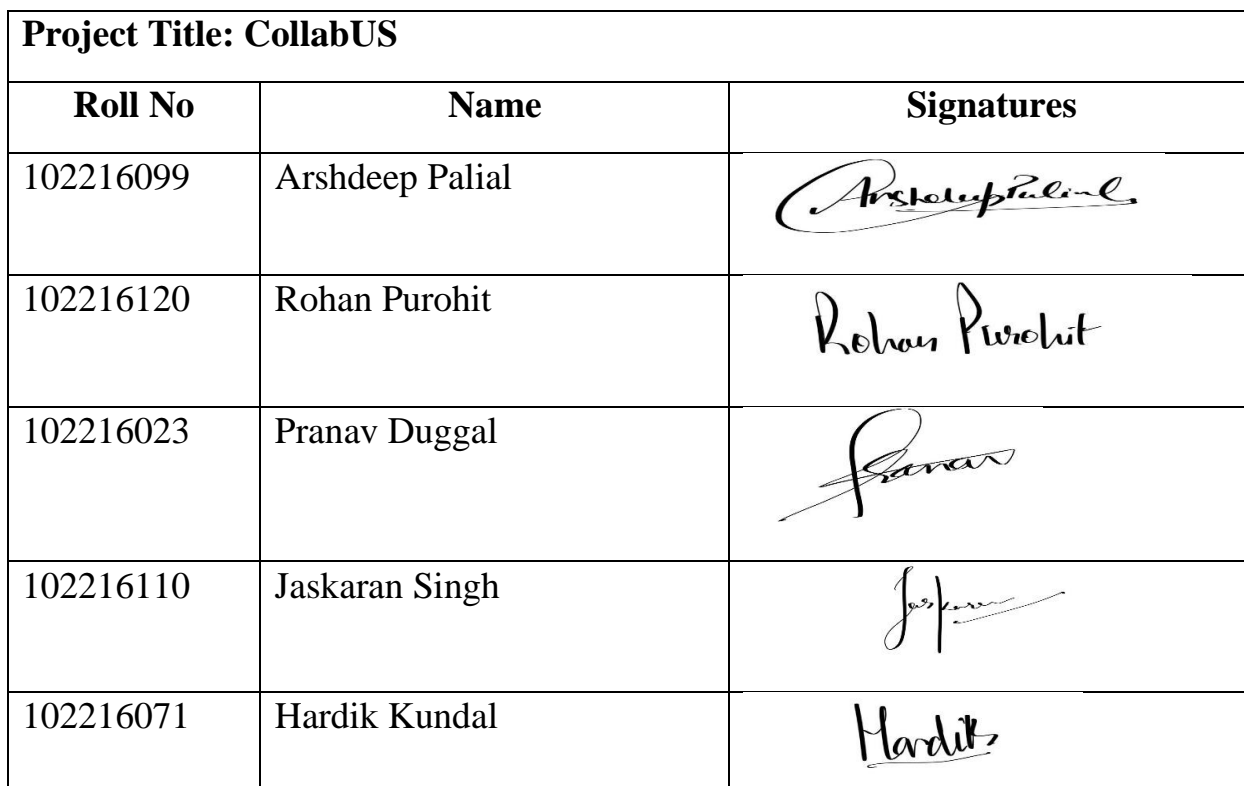 Project Title: CollabUS
Roll No Name Signatures
102216099 Arshdeep Palial ArshdeepPalial
102216120 Rohan Purohit Rohan Purohit
102216023 Pranav Duggal Pranav
102216110 Jaskaran Singh Jaskaran
102216071 Hardik Kundal Hardik